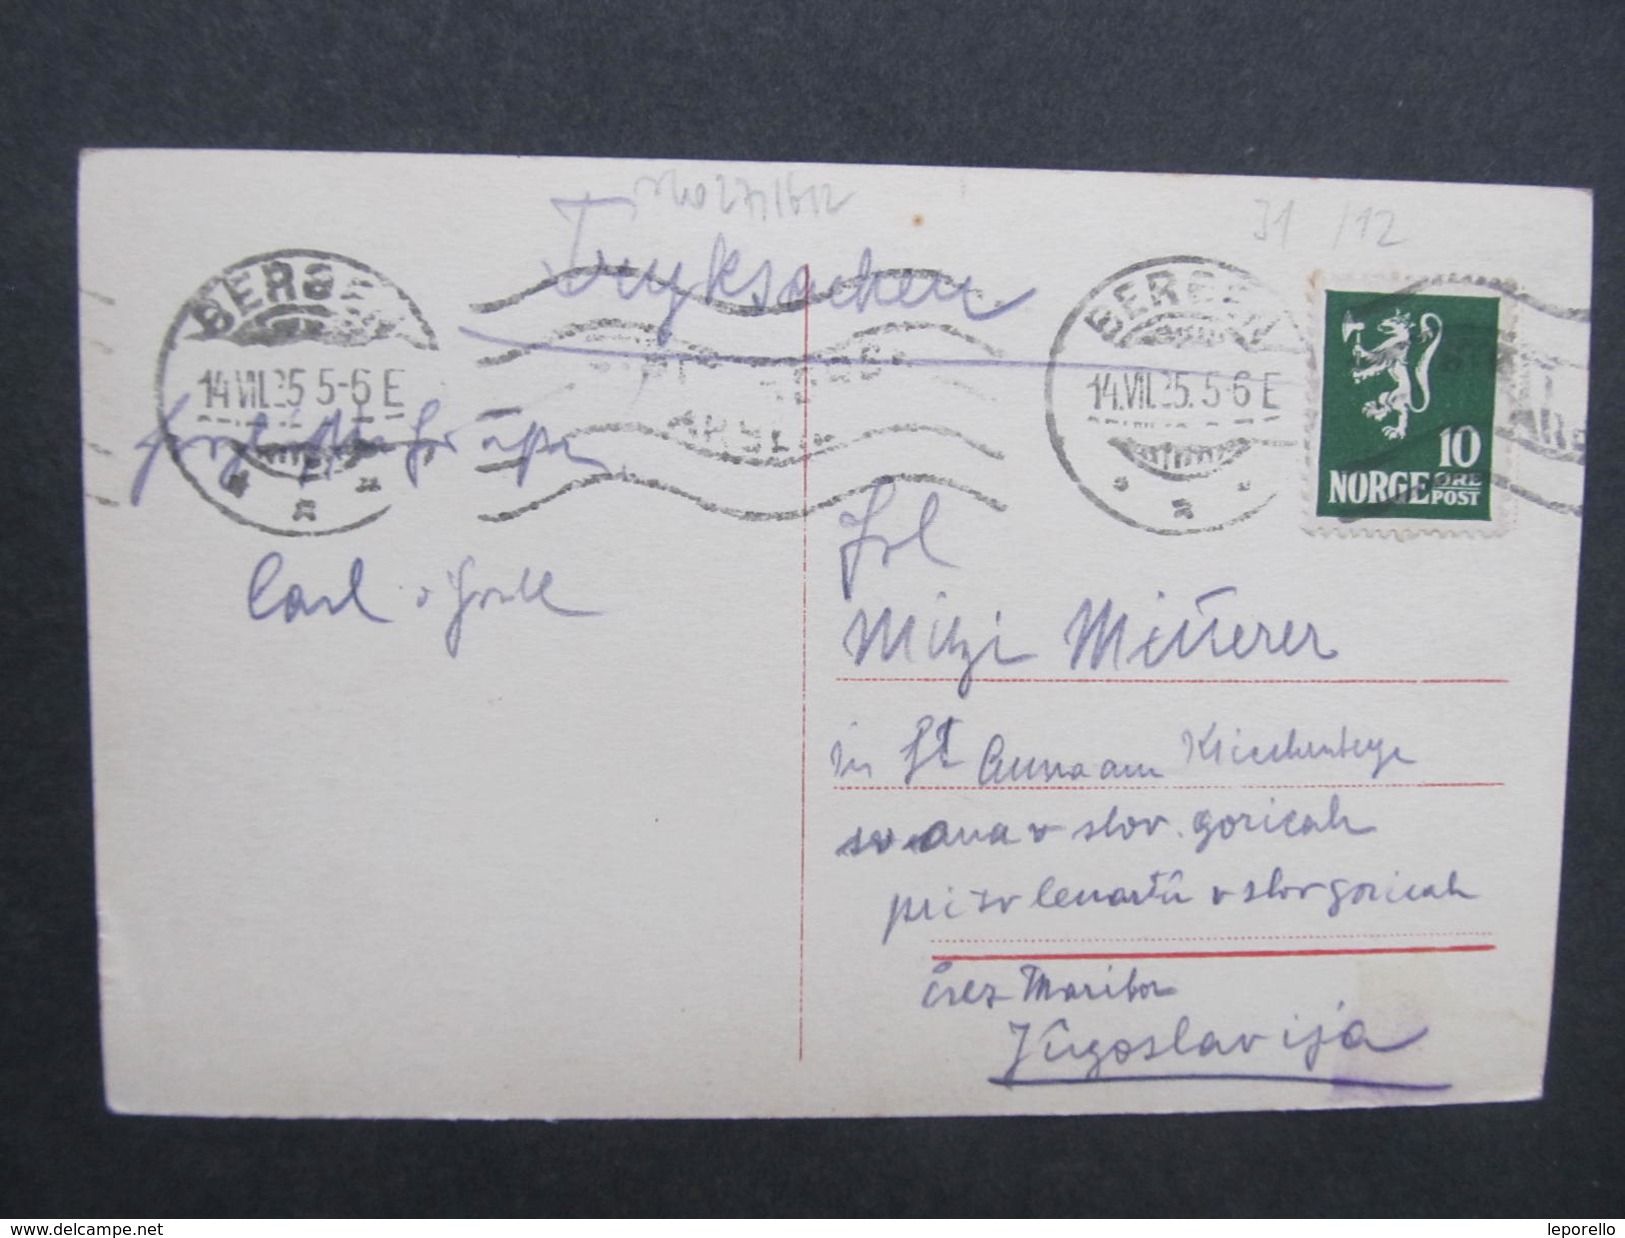 31 /12
Tryksachen
BERGEN
14.VII.25.5-6 E
BERGEN
14.VII.25.5-6 E
10
NORGE ØRE POST
Carl
Frl
Mitzi Mitterer
in St Anna am
sv ana v slov. goricah
pri sv lenartŭ v slov goricah
črez Maribor
Jŭgoslavija
www.delcampe.net
leporello